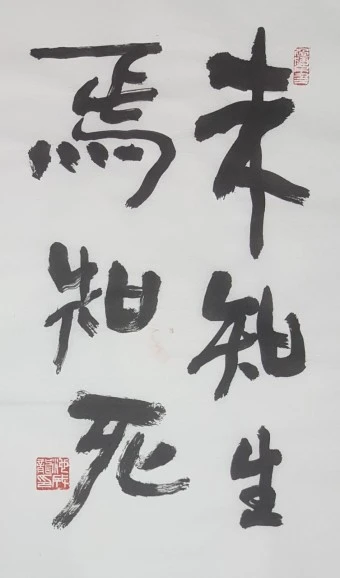 未知生
焉知死